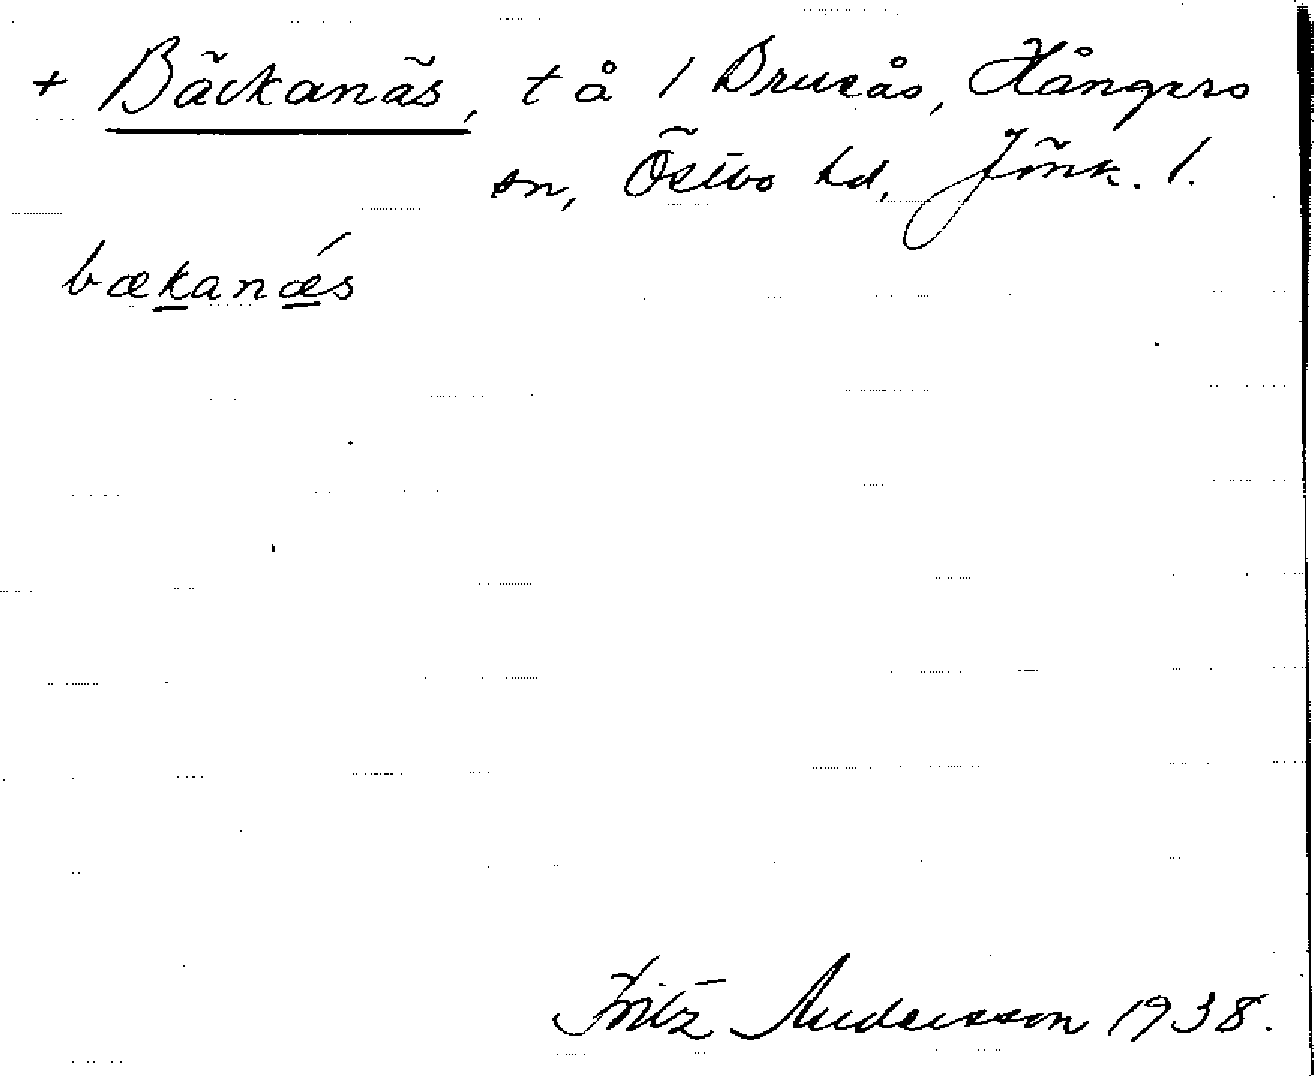 + Bäckanäs, t å 1 Brusås, Hångers
sn, Östbo hd, Jönk. l.
bækanǽs
Fritz Andersson 1938.